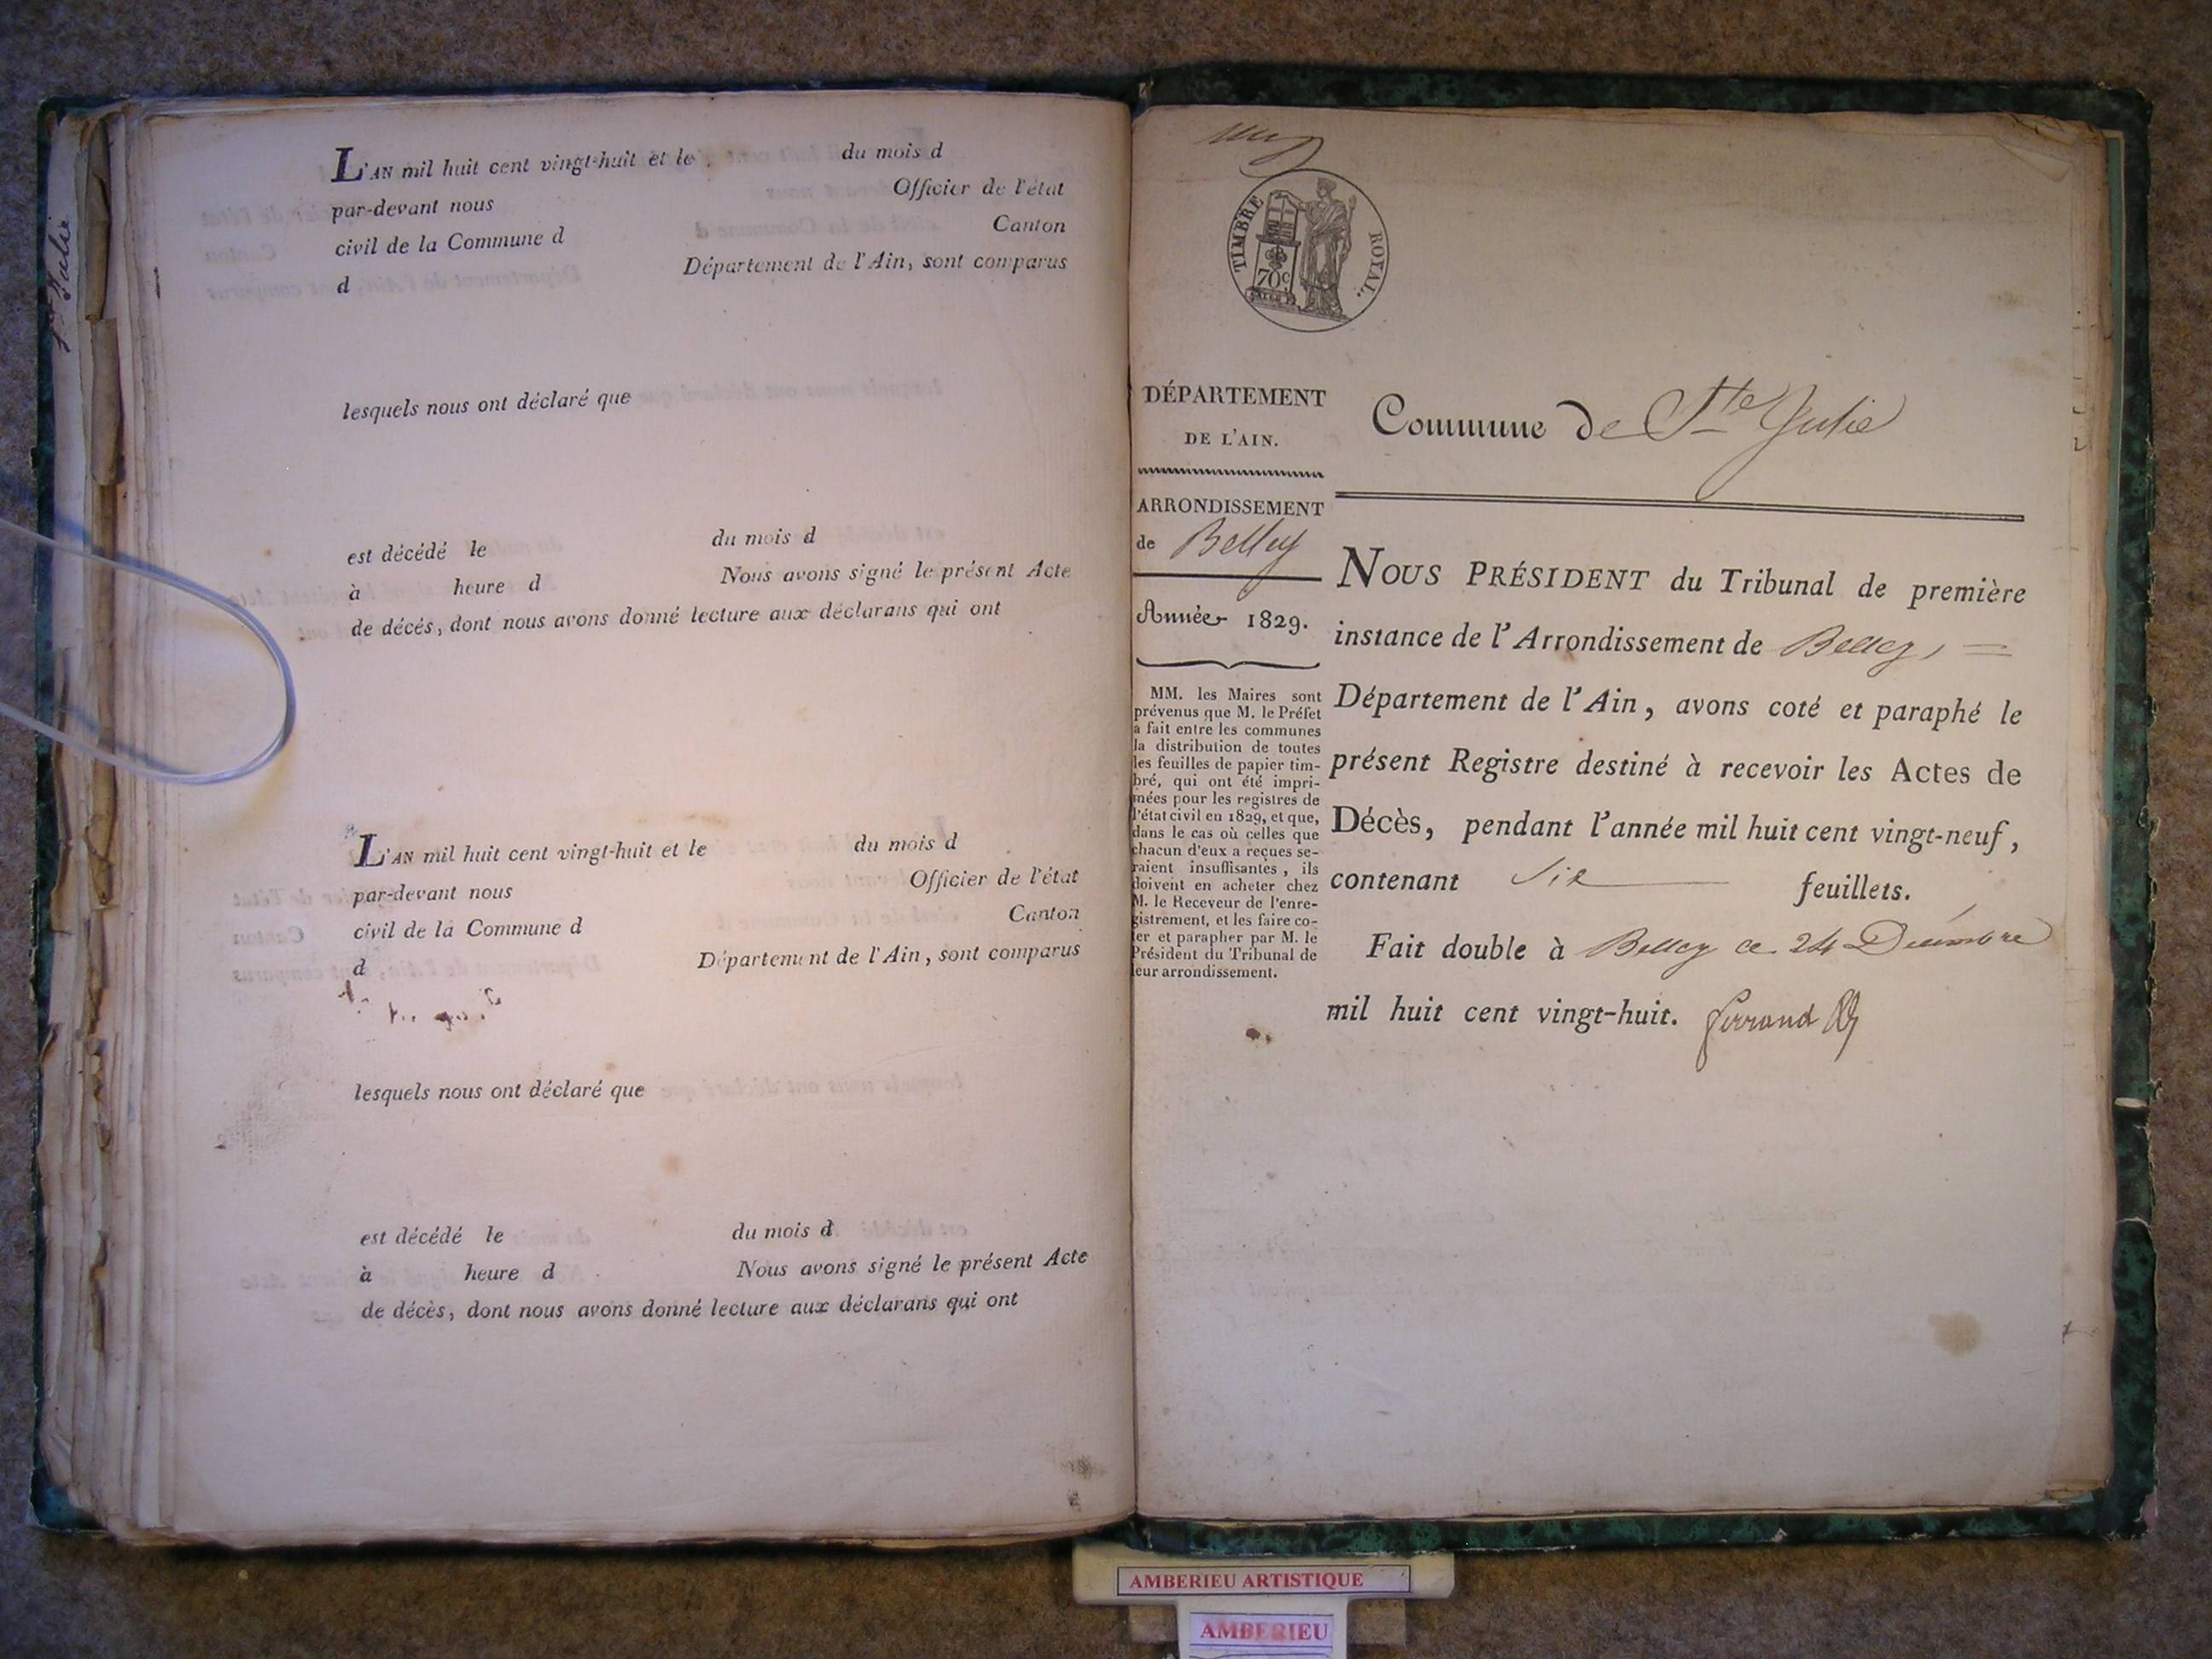 L'AN mil huit cent vingt-huit et le du mois d
par-devant nous Officier de l'état
civil de la Commune d Canton
d Département de l'Ain, sont comparus
lesquels nous ont déclaré que
est décédé le du mois d
à heure d Nous avons signé le présent Acte
de décés, dont nous avons donné lecture aux déclarans qui ont
L'AN mil huit cent vingt-huit et le du mois d
par-devant nous Officier de l'état
civil de la Commune d Canton
d Département de l'Ain, sont comparus
lesquels nous ont déclaré que
est décédé le du mois d
à heure d Nous avons signé le présent Acte
de décès, dont nous avons donné lecture aux déclarans qui ont
Ste Julie
TIMBRE ROYAL.
70c
DÉPARTEMENT
DE L'AIN.
ARRONDISSEMENT
de Belley
Année 1829.
MM. les Maires sont
prévenus que M. le Préfet
a fait entre les communes
la distribution de toutes
les feuilles de papier tim-
bré, qui ont été impri-
mées pour les registres de
l'état civil en 1829, et que,
dans le cas où celles que
chacun d'eux a reçues se-
raient insuffisantes, ils
doivent en acheter chez
M. le Receveur de l'enre-
gistrement, et les faire co-
ter et parapher par M. le
Président du Tribunal de
leur arrondissement.
Commune de Ste Julie
NOUS PRÉSIDENT du Tribunal de première
instance de l'Arrondissement de Belley,
Département de l'Ain, avons coté et paraphé le
présent Registre destiné à recevoir les Actes de
Décès, pendant l'année mil huit cent vingt-neuf,
contenant Six feuillets.
Fait double à Belley ce 24 Décembre
mil huit cent vingt-huit. Ferrand
AMBERIEU ARTISTIQUE
AMBERIEU